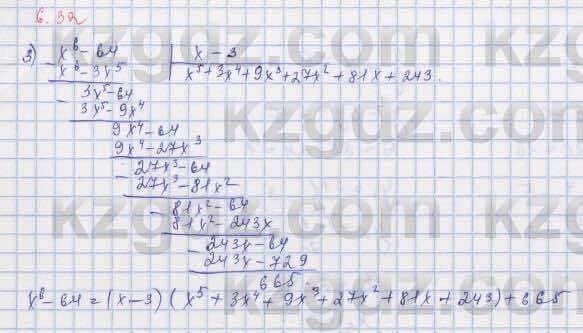 6.32
3) x⁶-64 | x-3
- x⁶-3x⁵ | x⁵+3x⁴+9x³+27x²+81x+243.
- 3x⁵-64
3x⁵-9x⁴
9x⁴-64
9x⁴-27x³
- 27x³-64
27x³-81x²
- 81x²-64
81x²-243x
- 243x-64
243x-729
665.
x⁶-64=(x-3)(x⁵+3x⁴+9x³+27x²+81x+243)+665
kzgdz.com